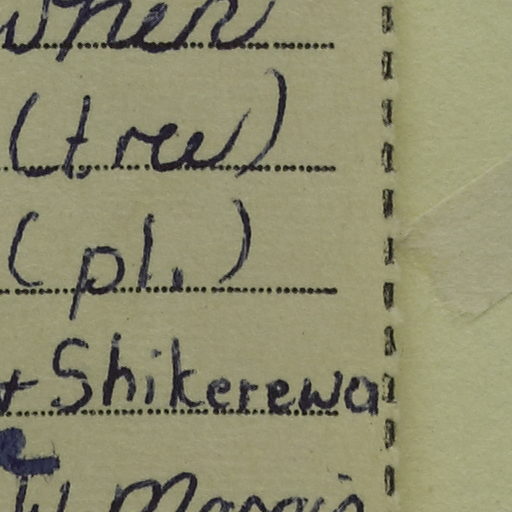 when
(tree)
(pl.)
+ Shikerewa